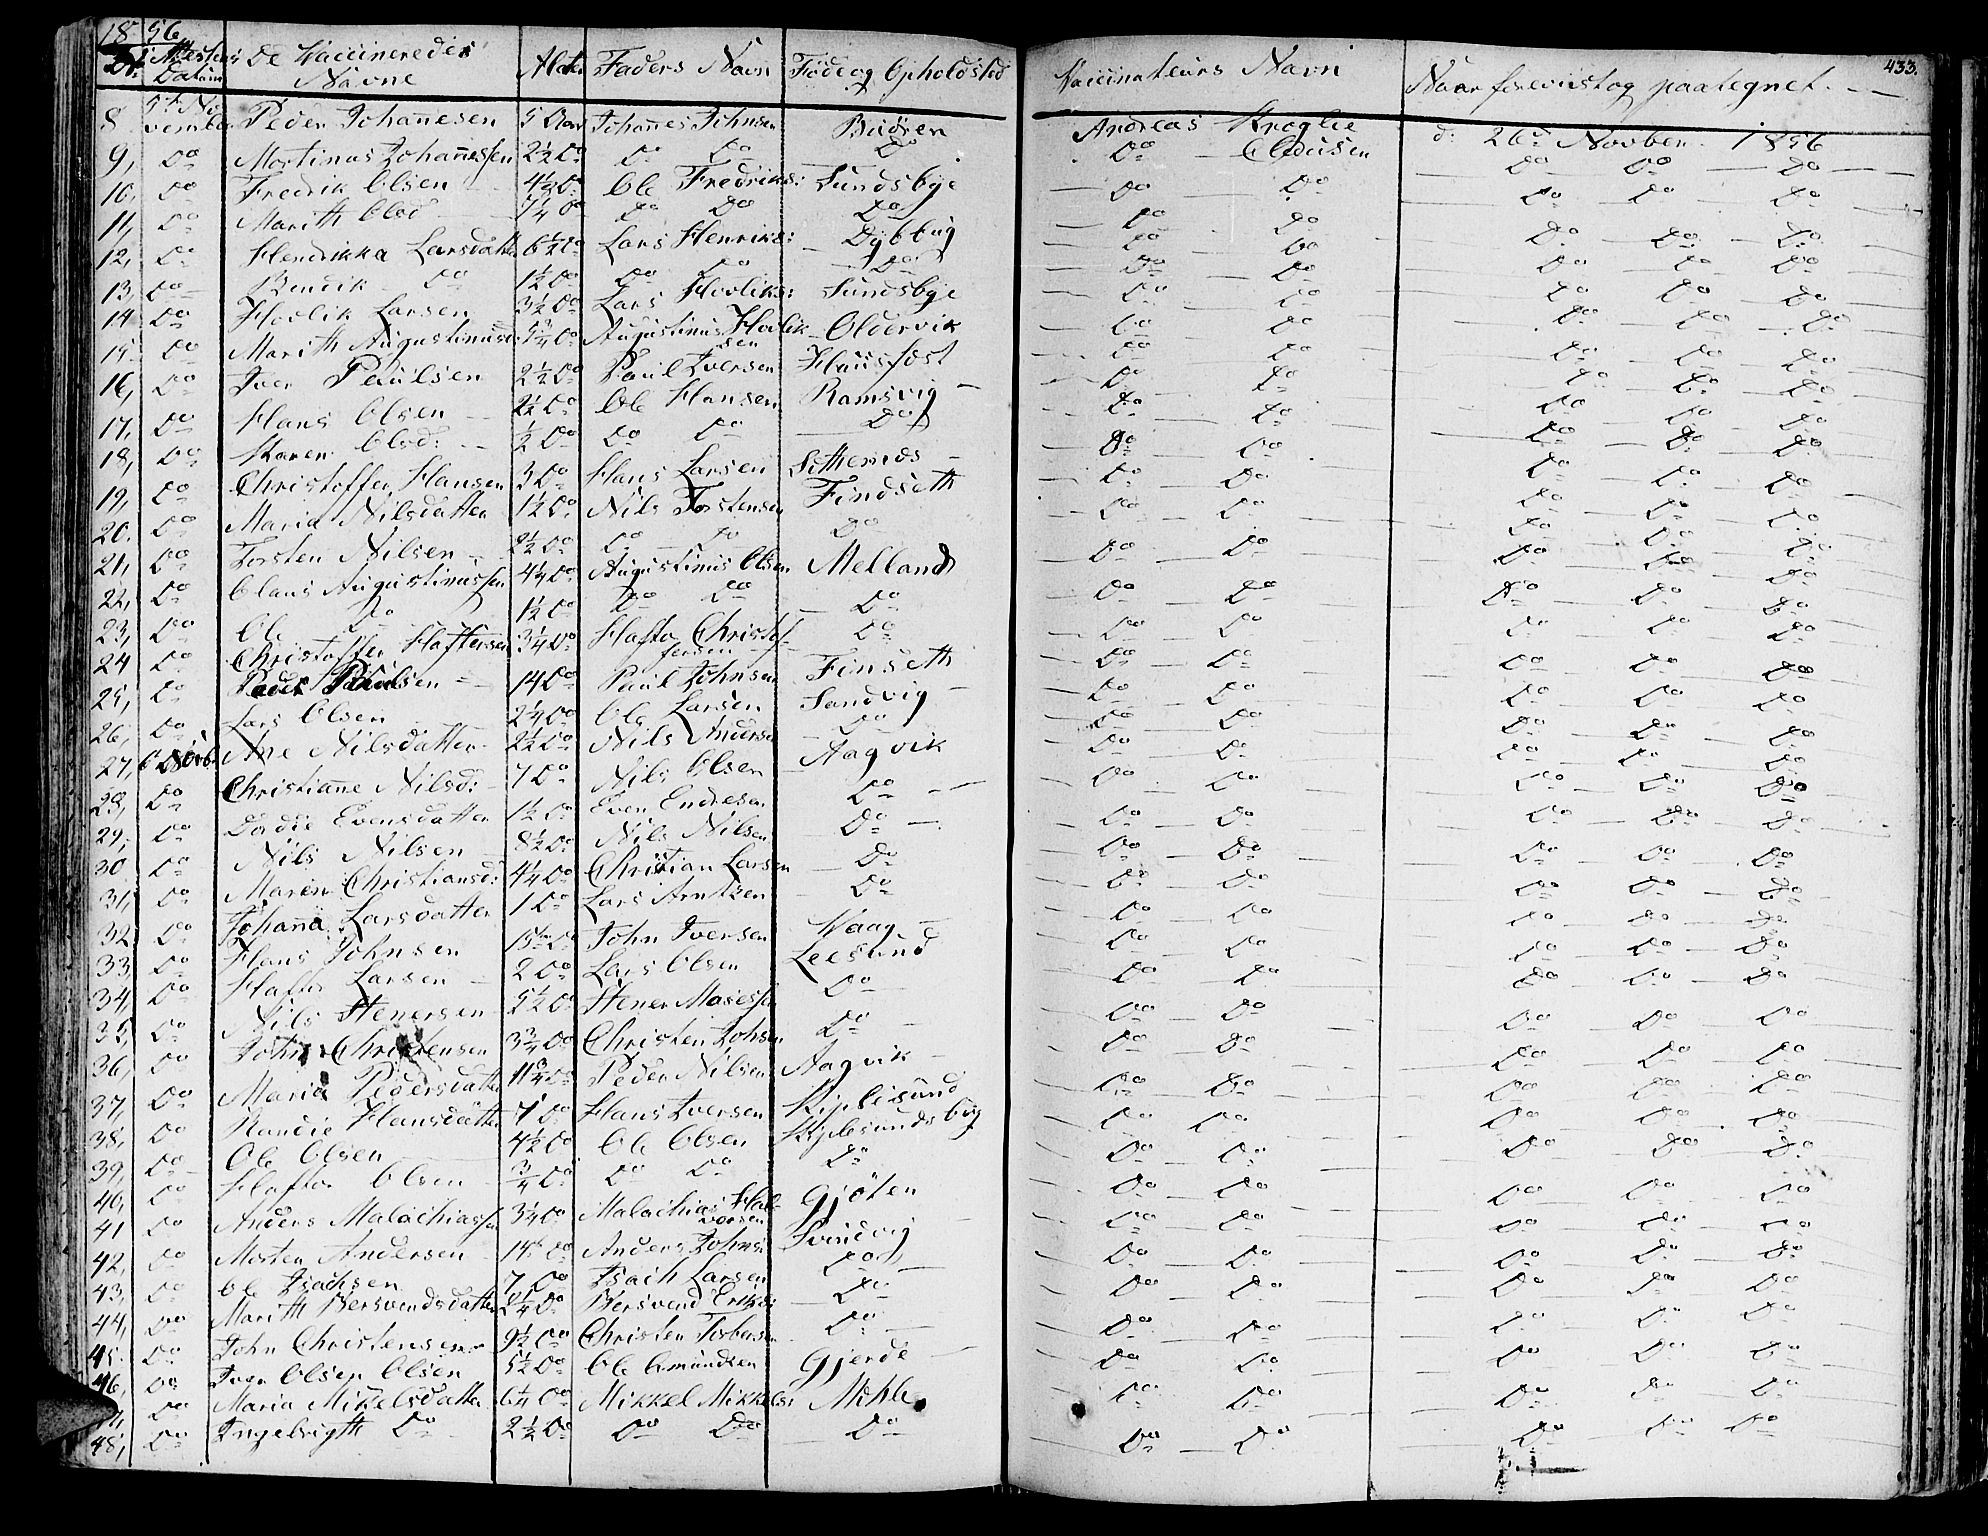 18 56
433.
No. Attestens Datum De Vaccineredes Navne Alder Faders Navn Føde og Opholdsted Vaccinateurs Navn Naar foreviist og paategnet.
8 5te November Peder Johannesen 5 Aar Johannes Johnsen Andreas Kroglie Claeusen d: 26de Novber 1856
9, Do Martinus Johannessen 2½ Do Do Do Do Do Do Do Do Do
10, Do Fredrik Olsen 4½ Do Ole Fredriks: Sundsbye Do Do Do Do Do
11, Do Marith Olsd 7¼ Do Do Do Do Do Do Do Do Do
12, Do Hendrikka Larsdatter 6½ Do Lars Henriks: Do Do Do Do Do
13, Do Bendik Do 1½ Do Do Do Do Do Do Do Do Do
14 Do Hovlik Larsen 3½ Do Lars Hovliks: Sundsbye Do Do Do Do Do
15 Do Marith Augustinusd: Do Augustinus Hovliksen Oldervik Do Do Do Do Do
16, Do Iver Paulsen 2½ Do Paul Iversen Do Do Do Do Do
17, Do Hans Olsen 2½ Do Ole Hansen Ramsvig Do Do Do Do Do
18, Do Karen Olsd: ½ Do Do Do Do Do Do Do Do Do
19, Do Christoffer Hansen 3 Do Hans Larsen Do Do Do Do Do
20. Do Maria Nilsdatter 1½ Do Nils Torstensen Findseth Do Do Do Do Do
21, Do Torsten Nilsen 2½ Do Do Do Do Do Do Do Do Do
22, Do Claus Augustinussen 4¼ Do Augustinus Olsen Melland Do Do Do Do Do
23, Do Ole Do 1½ Do Do Do Do Do Do Do Do Do
24 Do Christoffer Haftorsen 3¼ Do Hafto Christoffersen Do Do Do Do Do Do
25, Do Peder Paulsen 14 Do Paul Johnsen Finseth Do Do Do Do Do
26, Do Lars Olsen 2¼ Do Ole Larsen Sandvig Do Do Do Do Do
27, 6 Novb: Ane Nilsdatter 2½ Do Nils Andersen Do Do Do Do Do Do
28, Do Christianne Nilsd: 7 Do Nils Olsen Aagvik Do Do Do Do Do
29, Do Dordie Evensdatter 1½ Do Even Endresen Do Do Do Do Do Do
30 Do Nils Nilsen 8½ Do Nils Nilsen Do Do Do Do Do Do
31, Do Maren Christiansd: 4¼ Do Christian Larsen Do Do Do Do Do Do
32 Do Johanna Larsdatter 1 Do Lars Arntsen Do Do Do Do Do Do
33 Do Hans Johnsen Do John Iversen Waag Do Do Do Do Do
34, Do Haftor Larsen 2 Do Lars Olsen Leesund Do Do Do Do Do
35, Do Nils Stenersen 5½ Do Stener Mosessen Do Do Do Do Do Do
36, Do John Christensen 3¾ Do Christen Johsen Do Do Do Do Do Do
37, Do Maria Pedersdatter 11¾ Do Peder Nilsen Aagvik Do Do Do Do Do
38, Do Randie Hansdatter 7 Do Hans Iversen Kiplesund Do Do Do Do Do
39, Do Ole Olsen 4½ Do Ole Olsen Kiplesundsbug Do Do Do Do Do
40, Do Haftor Olsen ¾ Do Do Do Do Do Do Do Do Do
41 Do Anders Malachiassen 3¼ Do Malachias Halvorsen Gjöten Do Do Do Do Do
42, Do Morten Andersen Do Anders Johns: Svindvig Do Do Do Do Do
43, Do Ole Isachsen 7 Do Isach Larsen Do Do Do Do Do Do
44, Do Marith Bersvendsdatter 2¼ Do Bersvend Eriks: Do Do Do Do Do Do
45. Do John Christensen 9½ Do Christen Torbersen Do Do Do Do Do Do
46, Do Iver Olsen Olsen 5½ Do Ole Amundsen Gjerde Do Do Do Do Do
47, Do Maria Mikelsdatter 6¼ Do Mikkel Mikkels: Mohle Do Do Do Do Do
48, Do Ingebrigth Do 2½ Do Do Do Do Do Do Do Do Do